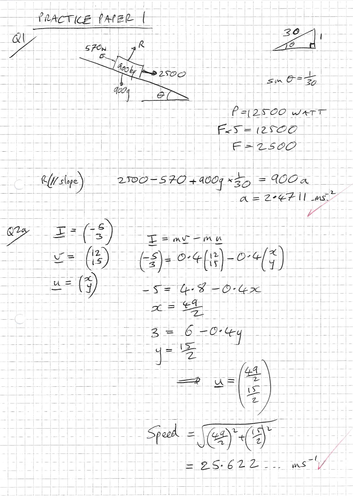 PRACTICE PAPER 1
Q1
570N
R
900kg
2500
900g
θ
30
1
θ
sin θ = 1/30
P = 12500 WATT
F×5 = 12500
F = 2500
R(// slope)
2500 - 570 + 900g × 1/30 = 900a
a = 2.4711 ms⁻²
Q2a
I = (-5 3)
v = (12 15)
u = (x y)
I = mv - mu
(-5 3) = 0.4(12 15) - 0.4(x y)
-5 = 4.8 - 0.4x
x = 49/2
3 = 6 - 0.4y
y = 15/2
⟹ u = (49/2 15/2)
Speed = √((49/2)² + (15/2)²)
= 25.622... ms⁻¹